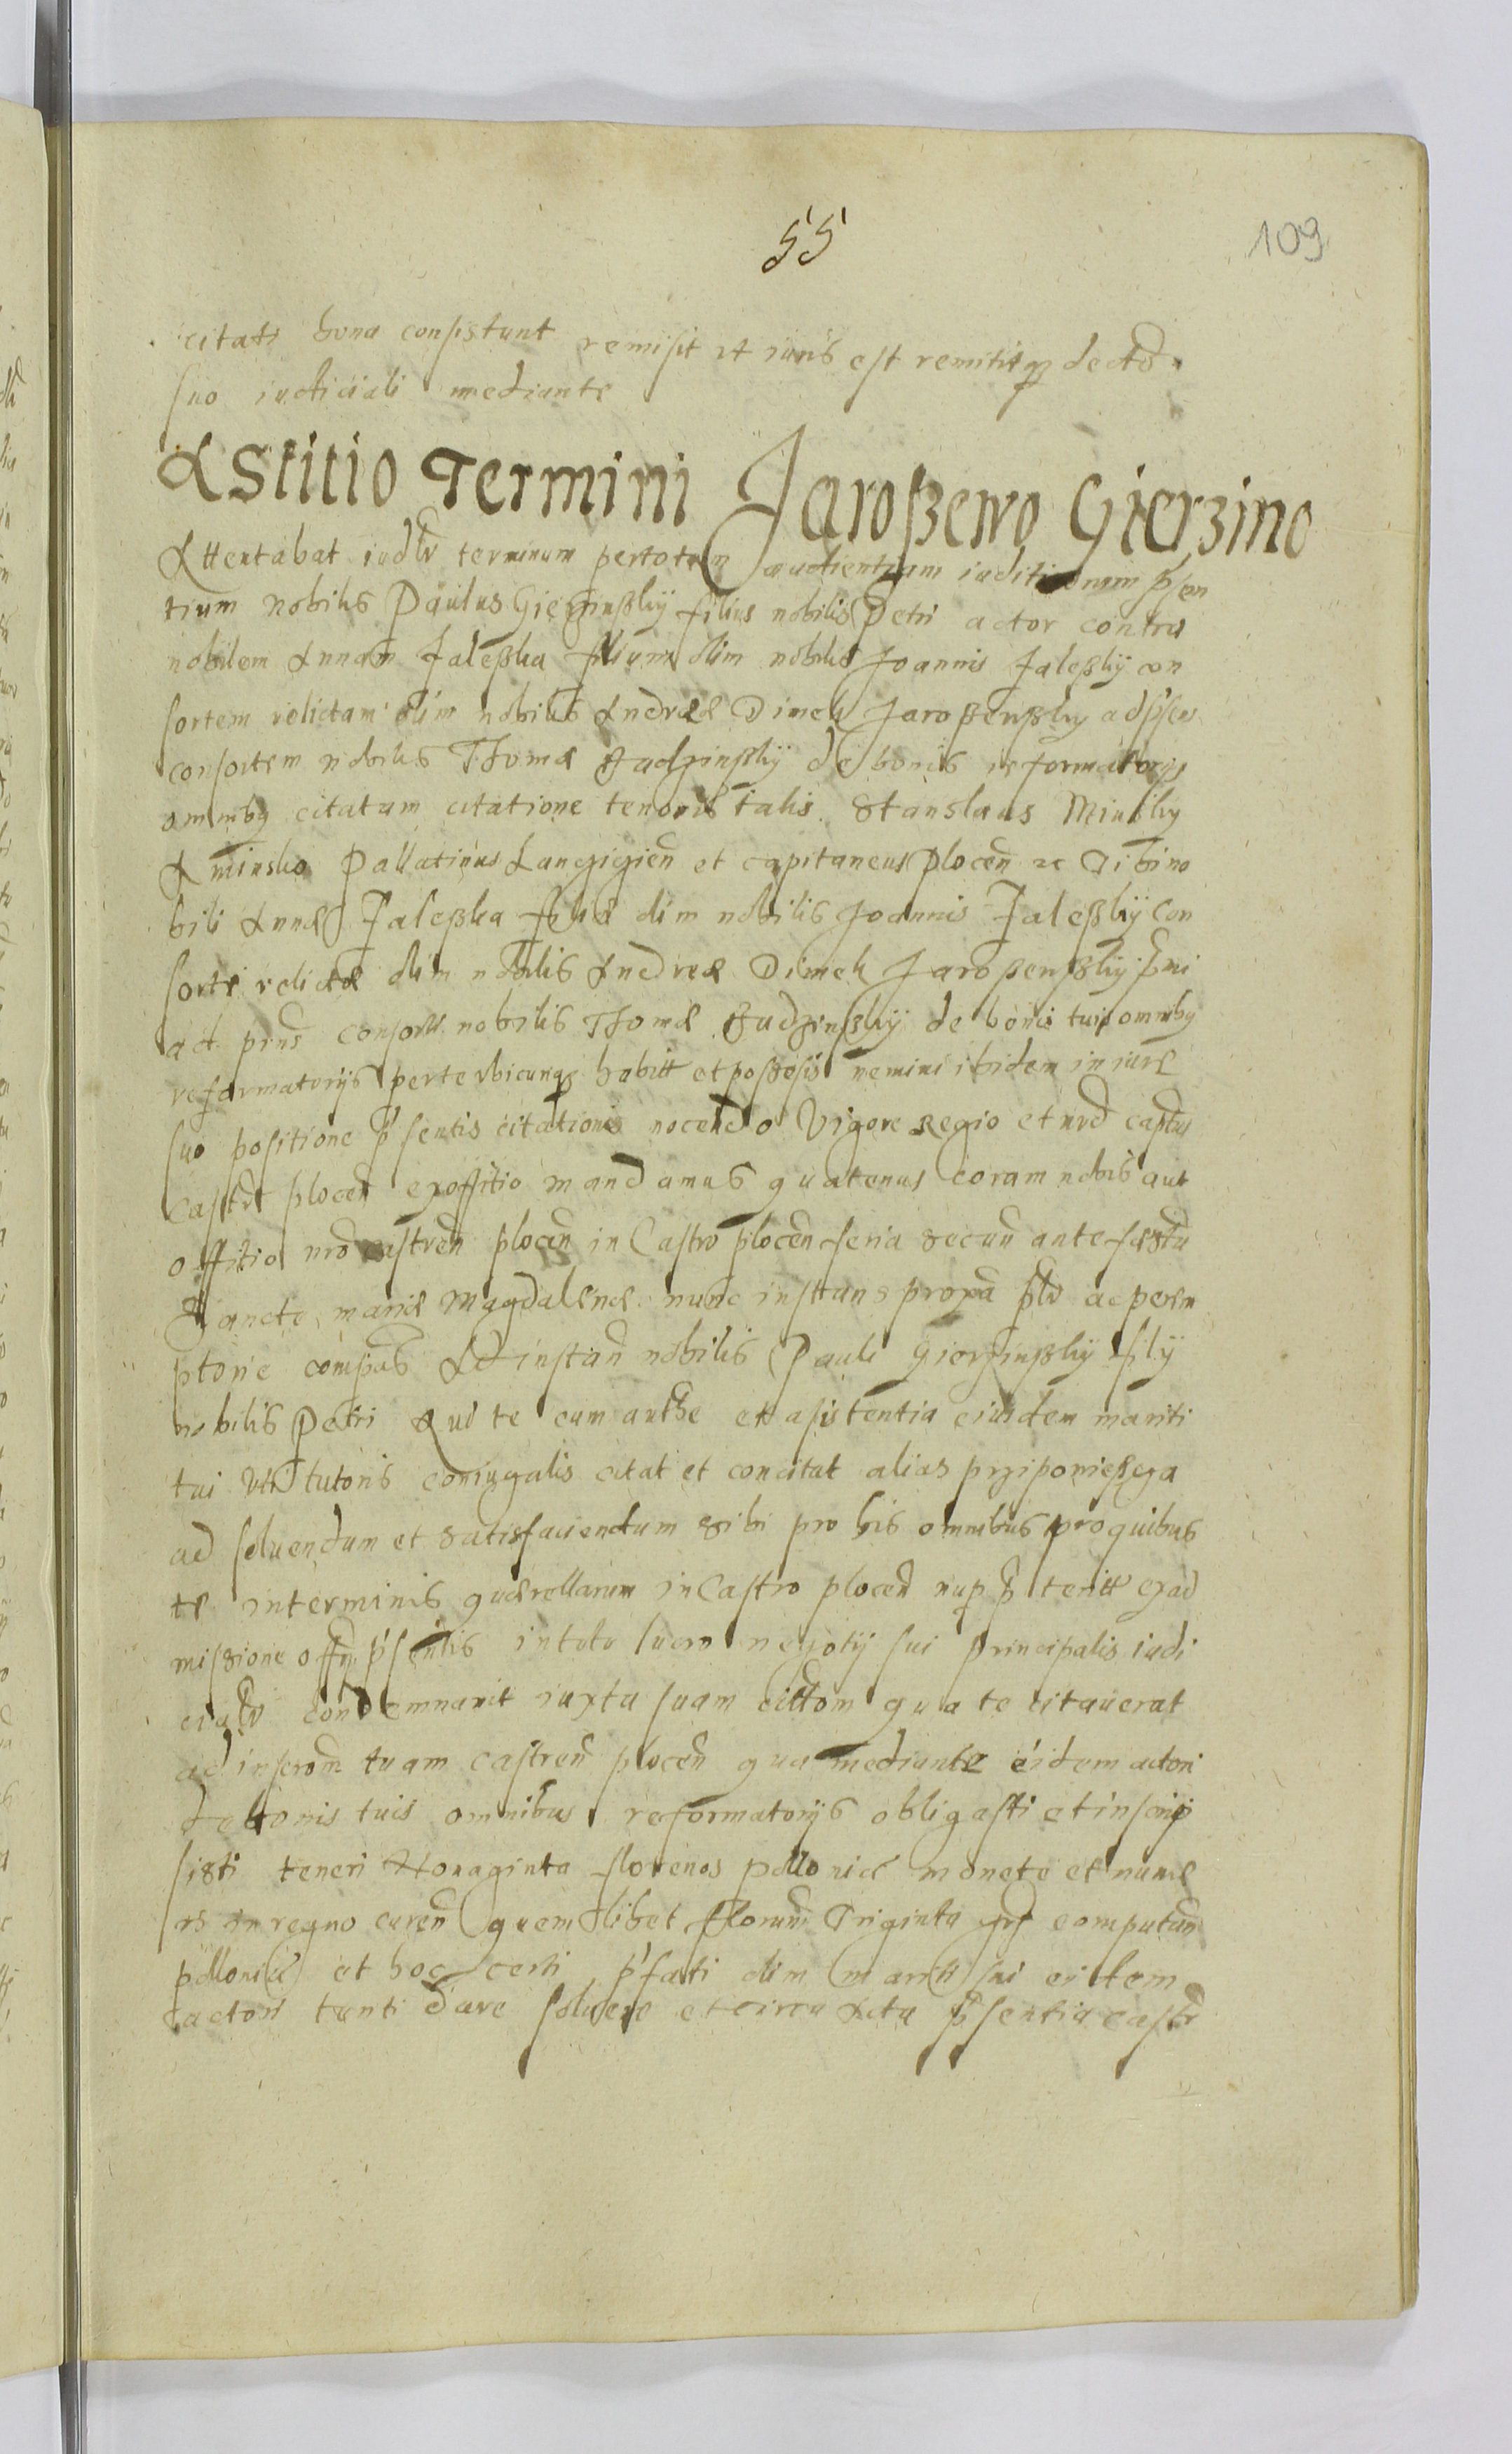 55
109
citati bona consistunt remisit ut iuris est remititq decto
suo iudiciali mediante
Astitio Termini Jaroßewo Gierzino
Attentabat iudlr terminum pertotam audientiam iuditiorum psen
tium nobilis Paulus Gierzinßky filius nobilis Petri actor contra
nobilem Annam Zaleßka filiam olim nobilis Joannis Zaleßky con
sortem relictam olim nobilis Andreæ Dimek Jaroßewßky adpsen
consortem nobilis Thomæ Budzinßky de bonis reformatorys
omnibq citatam citatione tenoris talis. Stanslaus Minsky
A minsko Pallatinus Lancicien et capitaneus Plocen rc Tibi no
bili Annæ Zaleßka filiæ olim nobilis Joannis Zaleßky con
sorti relictæ olim nobilis Andreæ Dimek Jaroßewßky pmi
act. pns consorti nobilis Thomæ Budzinßky de bonis tuis omnibq
reformatorys perte vbicunq habitt et poßesis nemini ibidem in iure
suo positione psentis citationis nocendo Vigore Regio et nrd
Castr plocen exoffitio mandamus quatenus coram nobis aut
offitio nro castren plocen in Castro plocen feria secun ante festu
Sancte mariæ Magdalenæ nunc instans proxa plr ac perem
ptorie compas Ad instan nobilis Pauli Gierzinßky fily
nobilis Petri Qui te cum authe et asistentia eiusdem mariti
tui uti tutoris coniugalis citat et concitat alias prziponiesßega
ad soluendum et satisfaciendum sibi pro his omnibus proquibus
te interminis quærellarum in Castro plocen nup pteritt exad
missione offy psentis intoto lucro negotij sui principalis iudi
cialr condemnauit iuxta suam cittom qua te citauerat
ad inscrom tuam castren plocen qua mediante eidem actori
debonis tuis omnibus reformatorys obligasti et inscrip
sisti teneri Nonaginta florenos pollonicæ monete et nume
ris in regno curen quemlibet florum Triginta grs computan
pollonicæ et hoc certi pfati olim mariti sui eidem
actori tanti dare soluere et circa Acta psentia castr